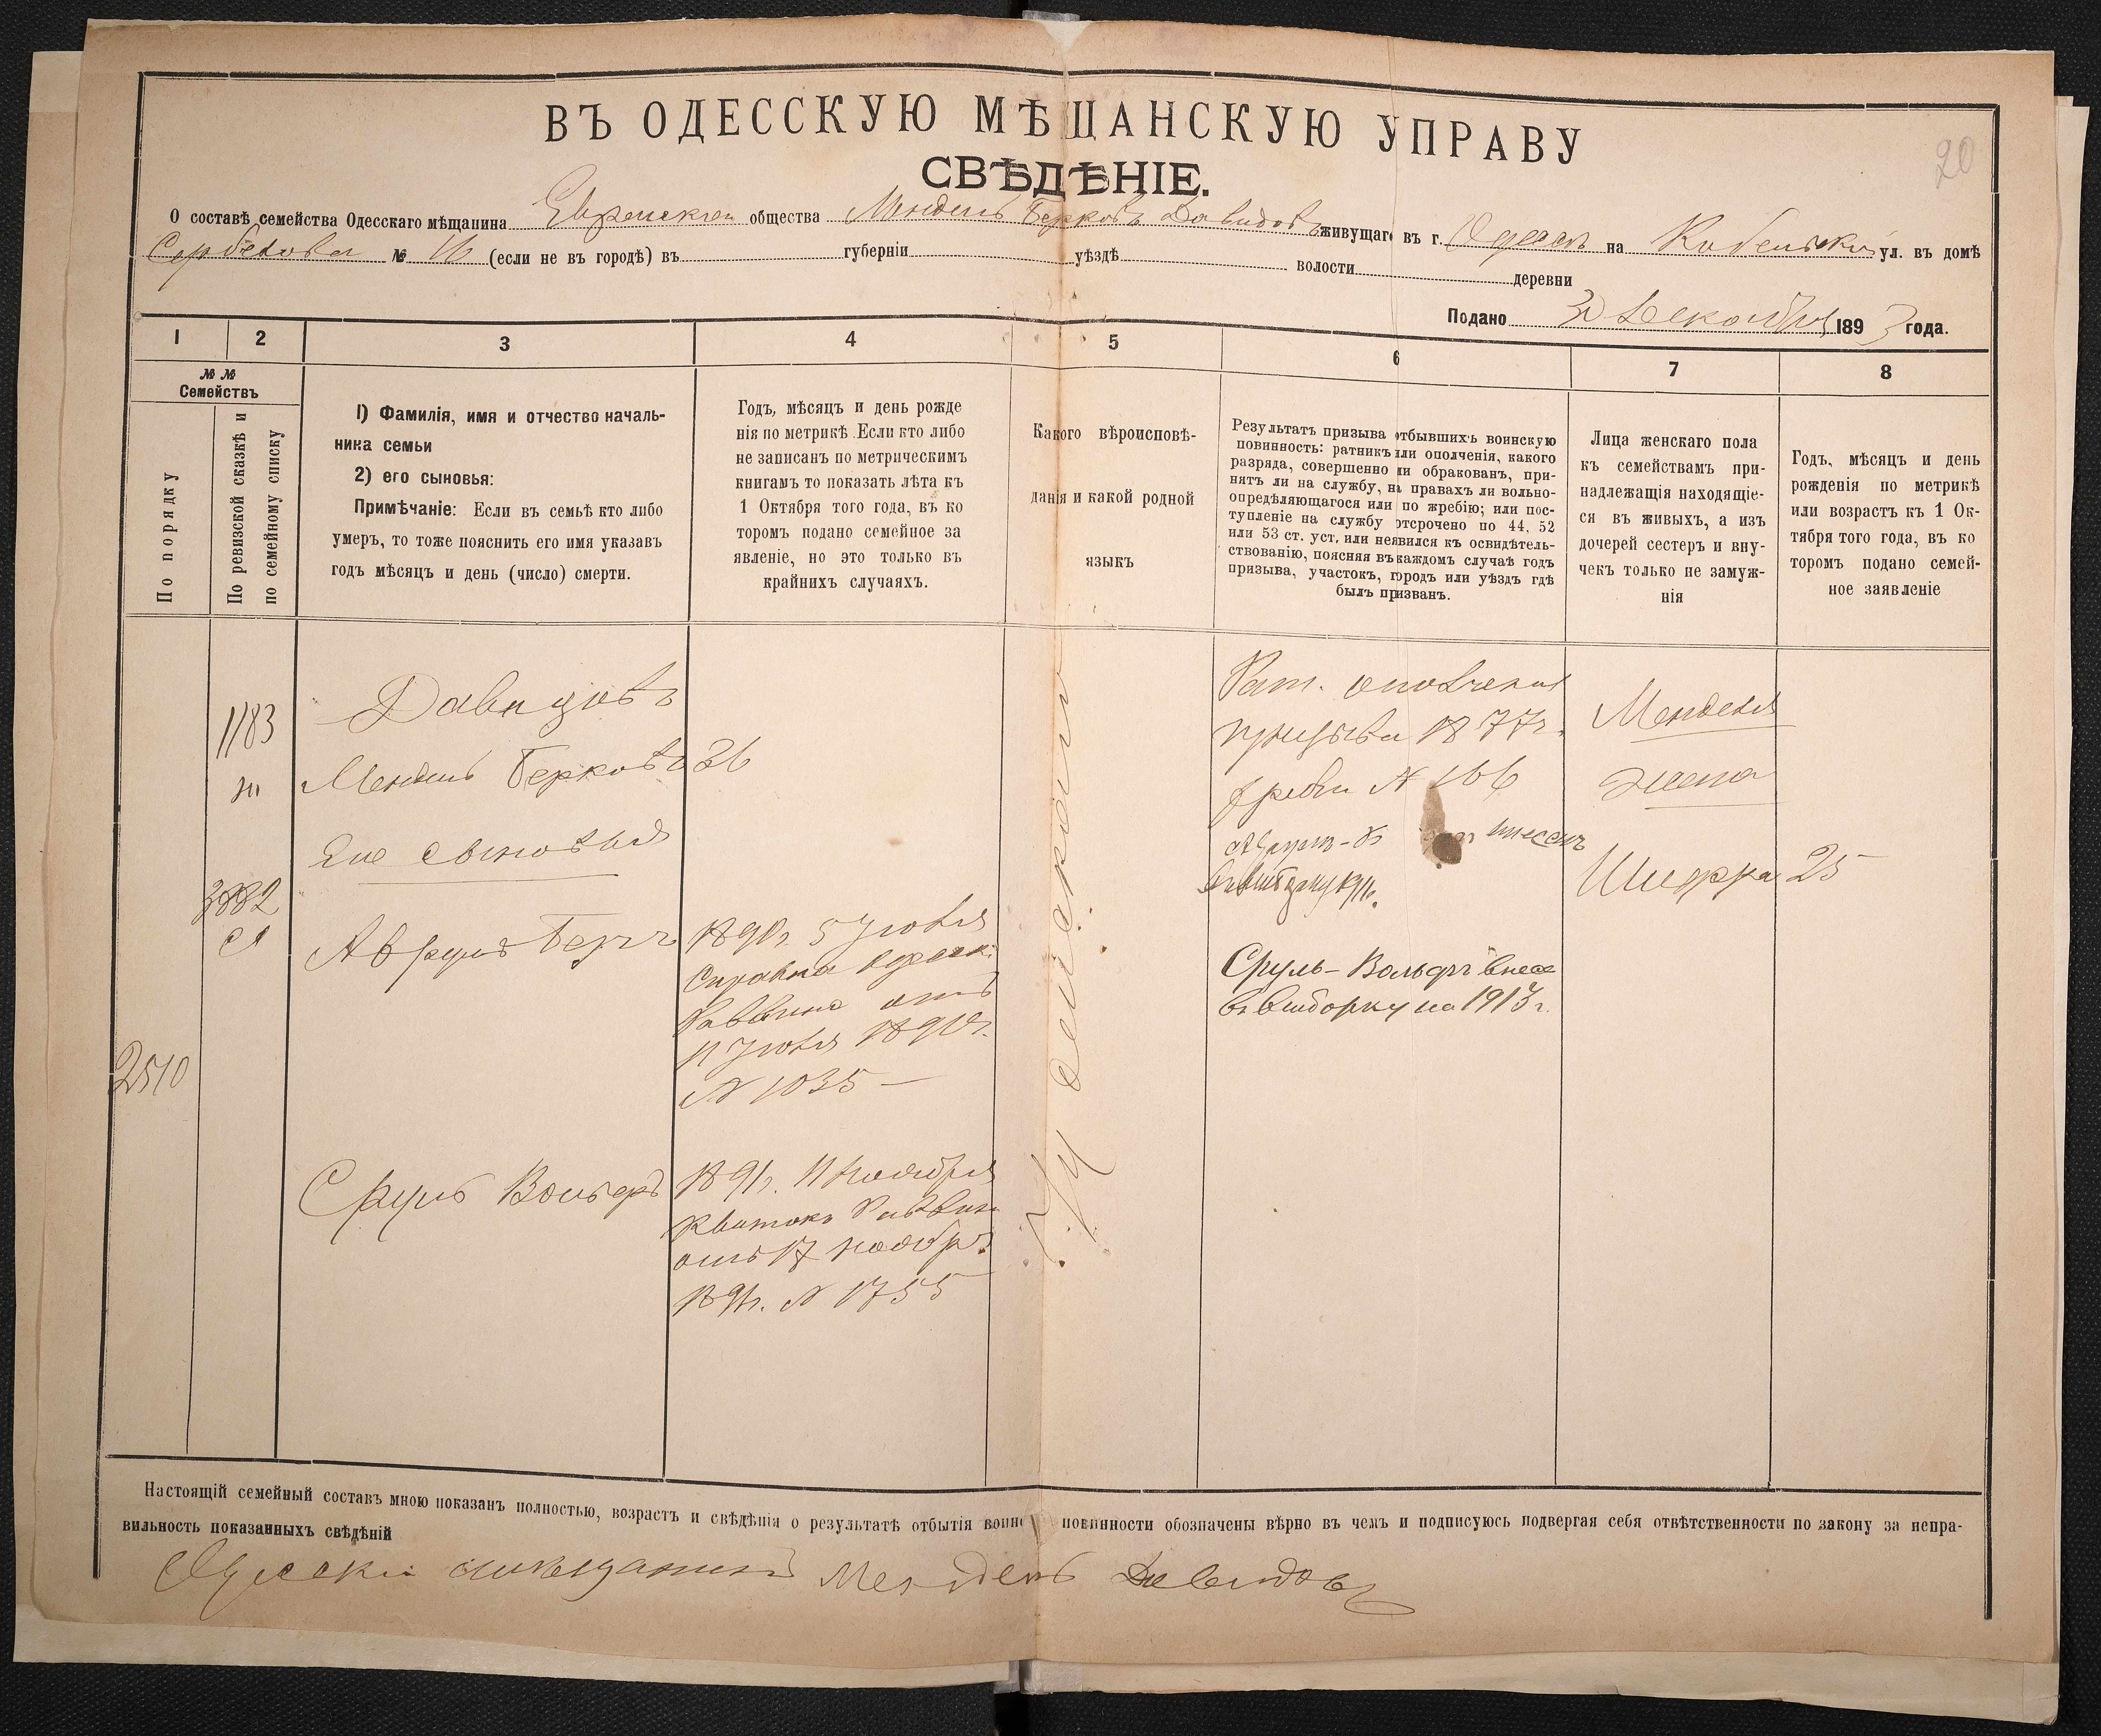 20
ВЪ ОДЕССКУЮ МѢЩАНСКУЮ УПРАВУ
СВѢДѢНІЕ.
О составѣ семейства Одесскаго мѣщанина Еврейскаго общества Мендель Берковъ Давидовъ живущаго въ г. Одессѣ на ул. въ домѣ
№ 16 (если не въ городѣ) въ губерніи уѣздѣ волости деревни
Подано Декабря 1893 года.
1 2 3 4 5 6 7 8
№ №
Семействъ
По порядку
По ревизской сказкѣ и
по семейному списку
1) Фамилія, имя и отчество началь-
ника семьи
2) его сыновья:
Примѣчаніе: Если въ семьѣ кто либо
умеръ, то тоже пояснить его имя указавъ
годъ мѣсяцъ и день (число) смерти.
Годъ, мѣсяцъ и день рожде
нія по метрикѣ. Если кто либо
не записанъ по метрическимъ
книгамъ то показать лѣта къ
1 Октября того года, въ ко
торомъ подано семейное за
явленіе, но это только въ
крайнихъ случаяхъ.
Какого вѣроисповѣ-
данія и какой родной
языкъ
Результатъ призыва отбывшихъ воинскую
повинность: ратникъ или ополченія, какого
разряда, совершенно ли обракованъ, при-
нятъ ли на службу, на правахъ ли вольно-
опредѣляющагося или по жребію; или пос-
тупленіе на службу отсрочено по 44, 52
или 53 ст. уст. или неявился къ освидѣтель-
ствованію, поясняя въ каждомъ случаѣ годъ
призыва, участокъ, городъ или уѣздъ гдѣ
былъ призванъ.
Лица женскаго пола
къ семействамъ при-
надлежащія находящіе-
ся въ живыхъ, а изъ
дочерей сестеръ и вну-
чекъ только не замуж-
нія
Годъ, мѣсяцъ и день
рожденія по метрикѣ
или возрастъ къ 1 Ок-
тября того года, въ ко
торомъ подано семей-
ное заявленіе
1183
3882
2510
Давидовъ
Мендель Берковъ 36
Его сыновья
Аврумъ Беръ
1890г. 5 Іюля
Справка Одесск.
Раввина отъ
11 Іюля 1890г.
№ 1035
Сруль Вольфъ
1891г. 11 Ноября
Квитокъ Раввин
отъ 17 ноябр.
1891г. № 1755
Іудейскаго
Рат. ополченія
призыва 1877г.
жребій № 166
Аврумъ-Б внесенъ
Сруль-Вольфъ внес
въ выборку на 1913 г.
Менделя
жена
Шифра 25
Настоящій семейный составъ мною показанъ полностью, возрастъ и свѣдѣнія о результатѣ отбытія воинс повинности обозначены вѣрно въ чемъ и подписуюсь подвергая себя отвѣтственности по закону за непра-
вильность показанныхъ свѣдѣній
Одесскій мѣщанинъ Мендель Давидовъ